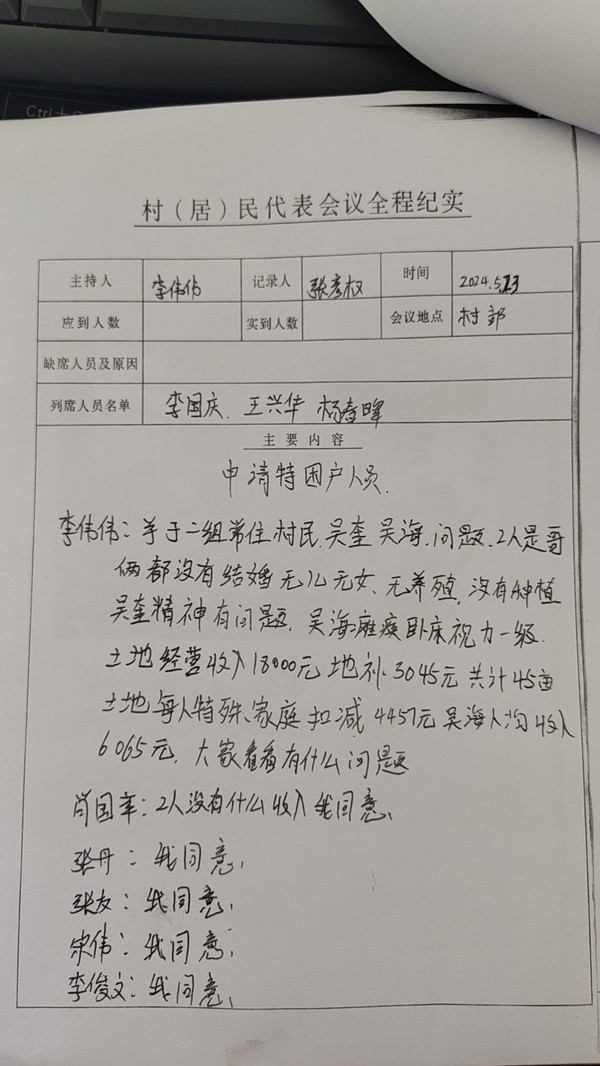 Ctrl
村（居）民代表会议全程纪实
主持人 李伟伟 记录人 张彦权 时间 2024.5.23
应到人数 实到人数 会议地点 村部
缺席人员及原因
列席人员名单 李国庆、王兴华 杨春晖
主要内容
申请特困户人员.
李伟伟：关于二组常住村民.吴奎 吴海.问题.2人是哥
俩都没有结婚无儿无女、无养殖，没有种植
吴奎精神有问题，吴海瘫痪卧床视力一级.
土地经营收入18000元 地补.3045元 共计45亩
土地每人特殊、家庭扣减4457元 吴海人均收入
6065元，大家看看有什么问题
肖国军：2人没有什么收入我同意、
张丹：我同意、
张友：我同意、
宋伟：我同意、
李俊文：我同意、